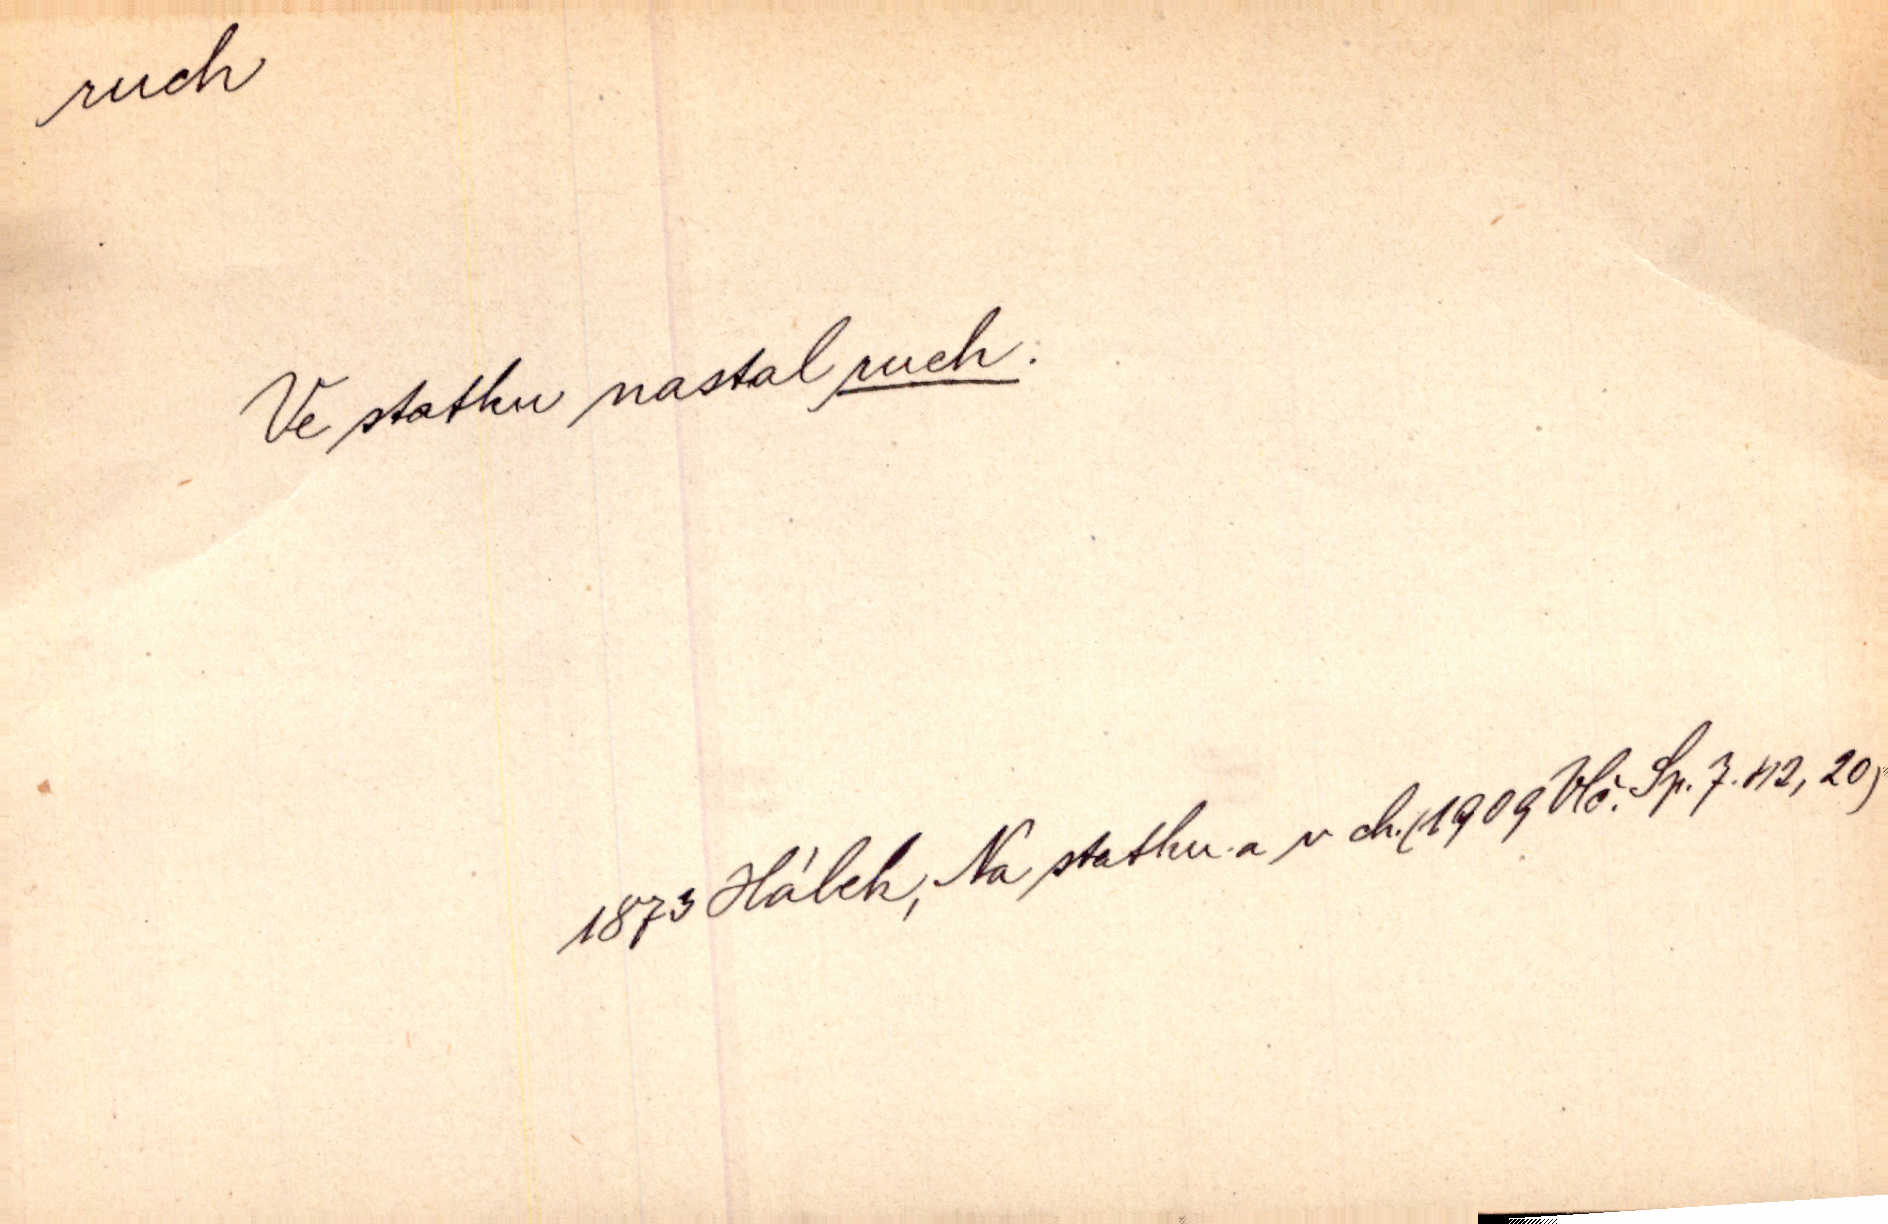 ruch
Ve statku nastal ruch.
1873 Hálek, Na statku a v ch. (1909 Vlč. Sp. 7. 112, 20)